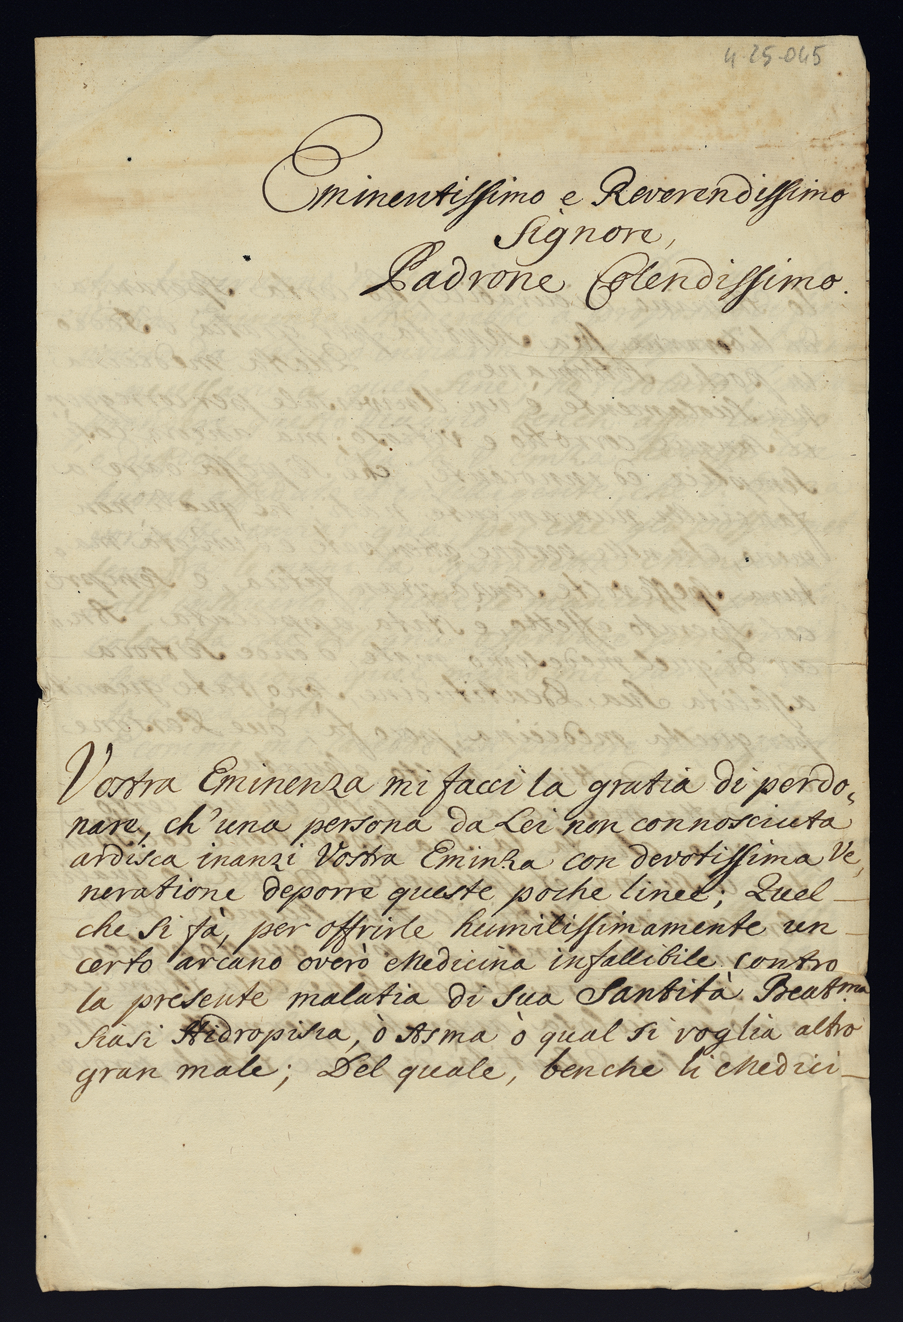 4-25-045
Eminentissimo e Reverendissimo
Signore,
Padrone Colendissimo.
Vostra Eminenza mi facci la gratia di perdo„
nare, ch'una persona da Lei non connosciuta
ardisca inanzi Vostra Eminza con devotissima Ve„
neratione deporre queste poche linee; Quel
che si fà, per offrirle humilissimamente un
certo arcano overò Medicina infallibile contro
la presente malatia di sua Santità Beatma
siasi Hidropisia, ò Asma ò qual si voglia altro
gran male; Del quale, benche li Medici